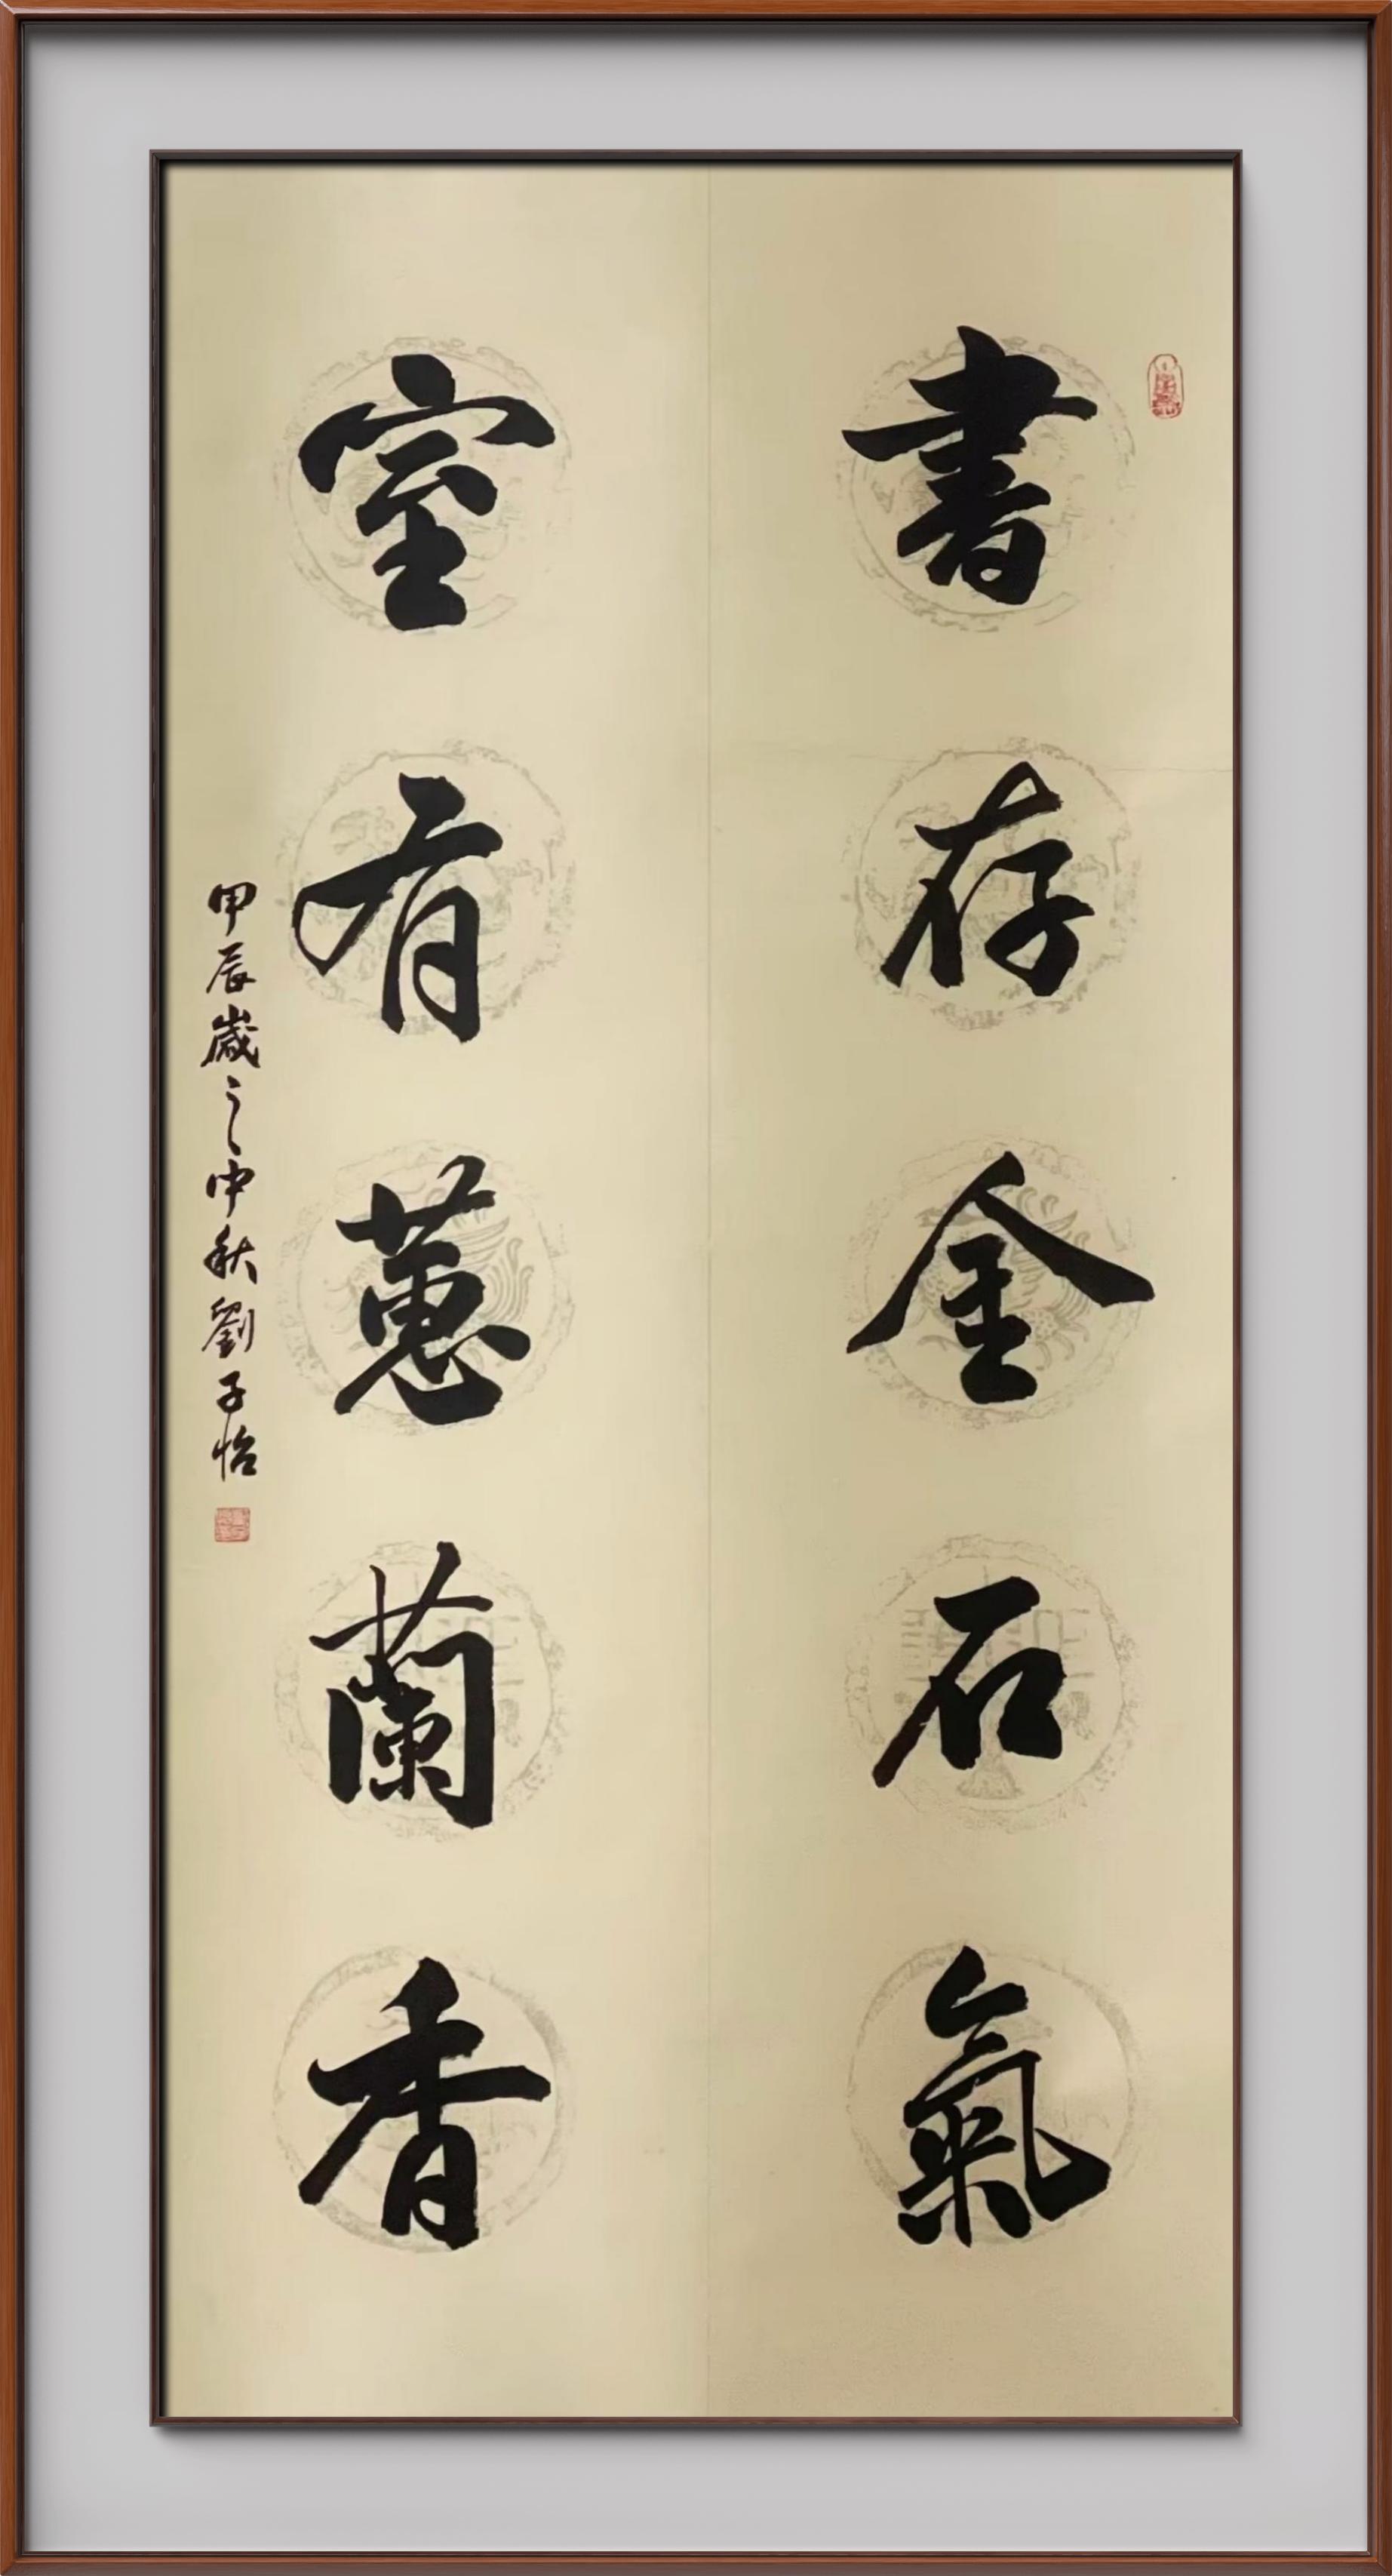 書存金石氣
室有蕙蘭香
甲辰歲之中秋劉子怡